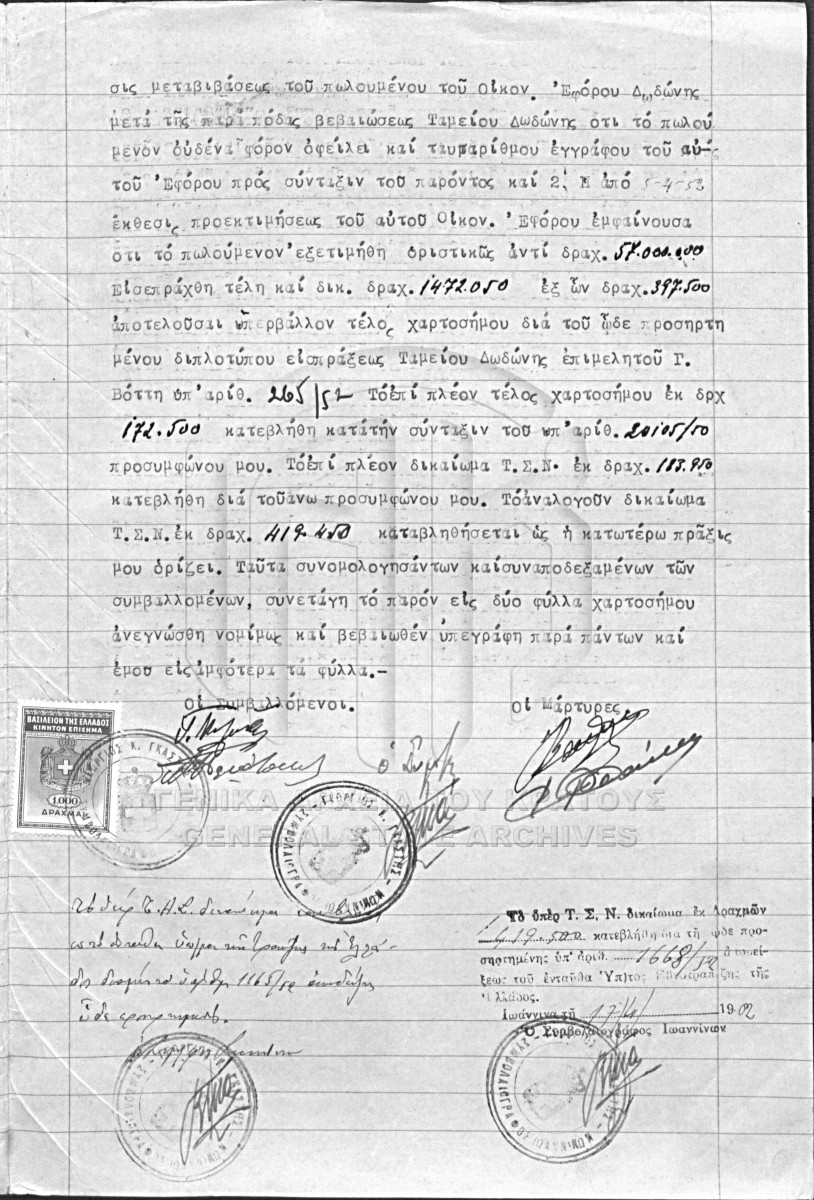 σις μεταβιβάσεως τοῦ πωλουμένου τοῦ Οἰκον. Ἐφόρου Δωδώνης
μετά τῆς παρά πόδας βεβαιώσεως Ταμείου Δωδώνης ὅτι τό πωλού
μενον οὐδένα φόρον ὀφείλει καί ταυταρίθμου ἐγγράφου τοῦ αὐ-
τοῦ Ἐφόρου πρός σύνταξιν τοῦ παρόντος καί 2. Ἡ ἀπό 5-4-52
ἔκθεσις προεκτιμήσεως τοῦ αὐτοῦ Οἰκον. Ἐφόρου ἐμφαίνουσα
ὅτι τό πωλούμενον ἐξετιμήθη ὁριστικῶς ἀντί δραχ. 57.000.000
Εἰσεπράχθη τέλη καί δικ. δραχ. 1472.050 ἐξ ὧν δραχ. 397.500
ἀποτελοῦσαι ὑπερβάλλον τέλος χαρτοσήμου διά τοῦ ὧδε προσηρτη
μένου διπλοτύπου εἰσπράξεως Ταμείου Δωδώνης ἐπιμελητοῦ Γ.
Βόττη ὑπ' ἀριθ. 265/52 Τόἐπί πλέον τέλος χαρτοσήμου ἐκ δρχ
172.500 κατεβλήθη κατάτήν σύνταξιν τοῦ ὑπ' ἀριθ. 20105/50
προσυμφώνου μου. Τόἐπί πλέον δικαίωμα Τ.Σ.Ν. ἐκ δραχ. 183.950
κατεβλήθη διά τοῦάνω προσυμφώνου μου. Τόἀναλογοῦν δικαίωμα
Τ.Σ.Ν. ἐκ δραχ. 419.450 καταβληθήσεται ὡς ἡ κατωτέρω πρᾶξις
μου ὁρίζει. Ταῦτα συνομολογησάντων καίσυναποδεξαμένων τῶν
συμβαλλομένων, συνετάγη τό παρόν εἰς δύο φύλλα χαρτοσήμου
ἀνεγνώσθη νομίμως καί βεβαιωθέν ὑπεγράφη παρά πάντων καί
ἐμοῦ εἰς ἀμφότερα τά φύλλα.-
Οἱ Συμβαλλόμενοι. Οἱ Μάρτυρες
ΒΑΣΙΛΕΙΟΝ ΤΗΣ ΕΛΛΑΔΟΣ
ΚΙΝΗΤΟΝ ΕΠΙΣΗΜΑ
1.000
ΔΡΑΧΜΑΙ
ΓΕΝΙΚΑ ΑΡΧΕΙΑ ΤΟΥ ΚΡΑΤΟΥΣ
GENERAL STATE ARCHIVES
Τὸ ὑπὲρ Τ. Σ. Ν. δικαίωμα ἐκ Δραχμῶν
κατεβλήθη διὰ τῆ ὧδε προ-
σηρτημένης ὑπ' ἀριθ. 1668/52 ἀποδεί
ξεως τοῦ ἐνταῦθα Ὑπ)τος Ἐθν. Τραπέζης τῆς
Ἑλλάδος.
Ἰωάννινα τῇ 17/4/ 1952
Ὁ Συμβολαιογράφος Ἰωαννίνων